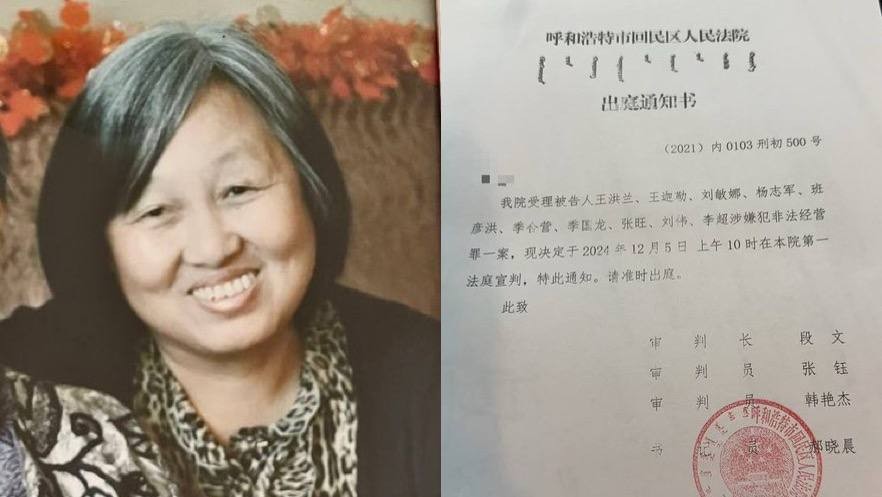 呼和浩特市回民区人民法院
出庭通知书
（2021）内 0103 刑初 500 号
我院受理被告人王洪兰、王迦勒、刘敏娜、杨志军、班
彦洪、季合营、季国龙、张旺、刘伟、李超涉嫌犯非法经营
罪一案，现决定于 2024 年 12 月 5 日 上午 10 时在本院第一
法庭宣判，特此通知。请准时出庭。
此致
审 判 长 段 文
审 判 员 张 钰
审 判 员 韩艳杰
书 员 郝晓晨
呼和浩特市回民区人民法